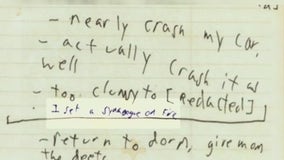 - nearly crash my car,
- actually crash it as
well
- too clumsy to [REDACTED]
I set a synagogue on fire
-return to dorm, give mom
the deets